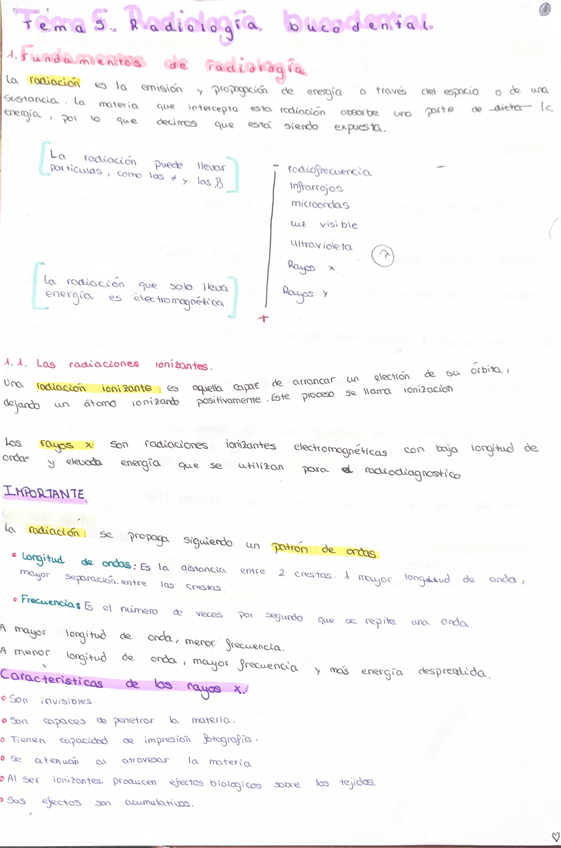 Tema 5. Radiología bucodental.
1. Fundamentos de radiología
La radiación es la emisión y propagación de energía a través del espacio o de una
sustancia. La materia que intercepta esta radiación absorbe una parte de dicta la
energía, por lo que decimos que está siendo expuesta.
La radiación puede llevar
partículas, como las α y las β
- radiofrecuencia
Infrarrojos
microondas
luz visible
Ultravioleta
Rayos x
Rayos γ
+
La radiación que solo lleva
energía es electromagnética
1.1. Las radiaciones ionizantes.
Una radiación ionizante es aquella capaz de arrancar un electrón de su órbita,
dejando un átomo ionizando positivamente. Este proceso se llama ionización
Los rayos x son radiaciones ionizantes electromagnéticas con baja longitud de
onda y elevada energía que se utilizan para el radiodiagnostico
IMPORTANTE
La radiación se propaga siguiendo un patrón de ondas
• Longitud de ondas: Es la distancia entre 2 crestas. A mayor longitud de onda,
mayor separación entre las crestas.
• Frecuencia: Es el número de veces por segundo que se repite una onda.
A mayor longitud de onda, menor frecuencia.
A menor longitud de onda, mayor frecuencia y más energía desprendida.
Características de los rayos x.
• Son invisibles
• Son capaces de penetrar la materia.
• Tienen capacidad de impresión fotografía.
• Se atenuan al atravesar la materia
• Al ser ionizantes producen efectos biologicos sobre los tejidos.
• Sus efectos son acumulativos.